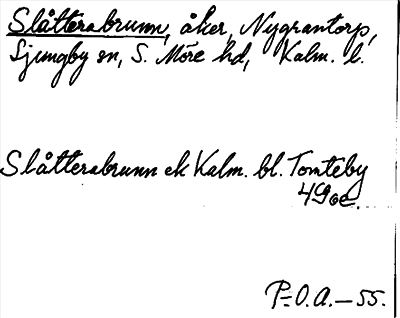 Slåttersbrunn, åker, Nygrantorp,
Ljungby sn, S. Möre hd, Kalm. l.
Slåttersbrunn ek Kalm. bl. Tomteby
4G0e.
P-O.A.–55.